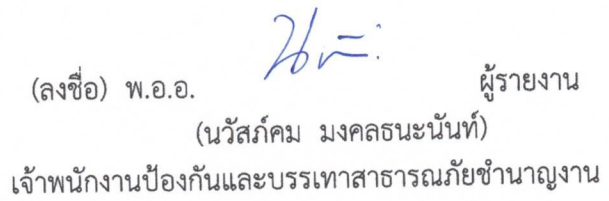 (ลงชื่อ) พ.อ.อ. ผู้รายงาน
(นวัสภ์คม มงคลธนะนันท์)
เจ้าพนักงานป้องกันและบรรเทาสาธารณภัยชำนาญงาน